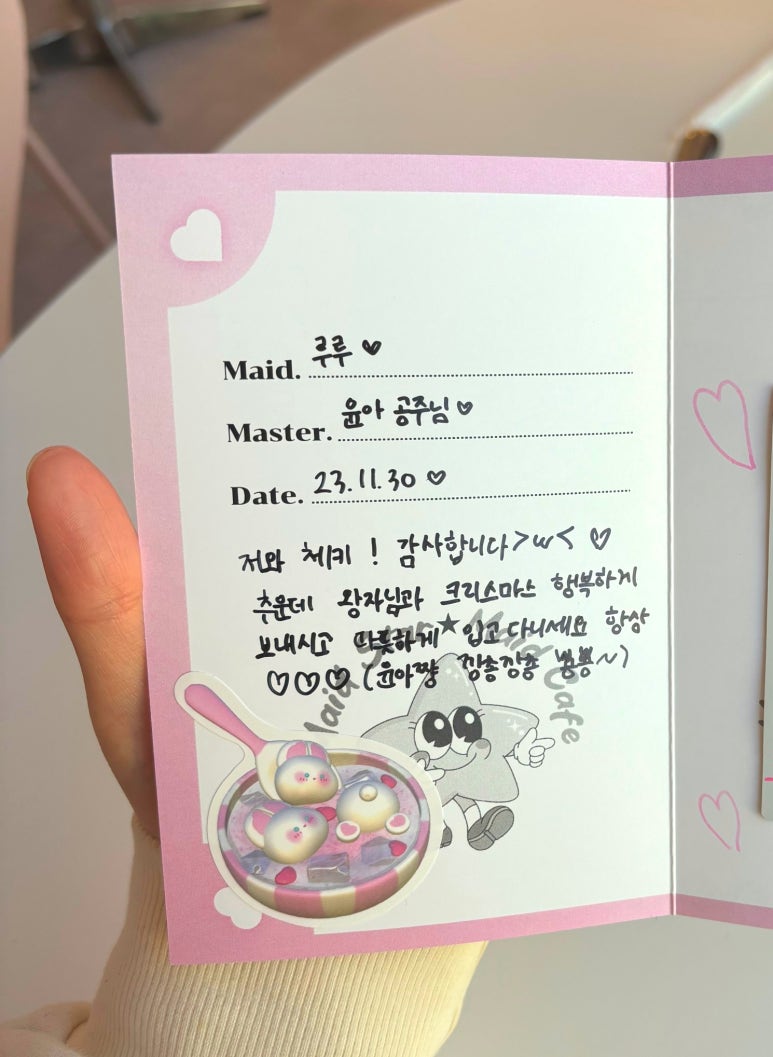 Maid. 루루 ♥
Master. 윤아 공주님 ♡
Date. 23.11.30 ♡
저와 체키 ! 감사합니다>w< ♡
추운데 왕자님과 크리스마스 행복하게
보내시고 따뜻하게 입고다니세요 항상
♡♡♡ (윤아짱 깡총깡총 뿅뿅~)
Maid Star★Maid Cafe